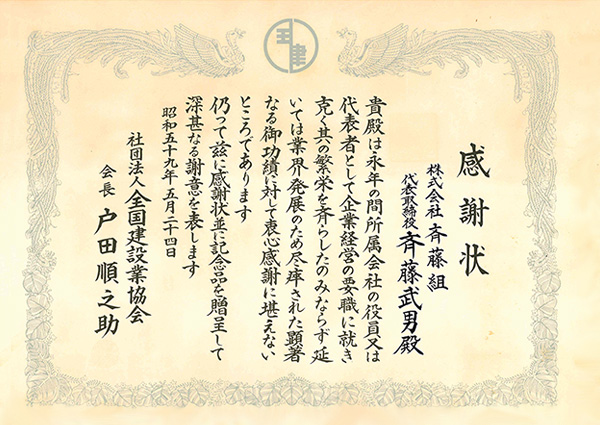 感謝状
株式会社 斉藤組
代表取締役 斉藤武男殿
貴殿は永年の間所属会社の役員又は
代表者として企業経営の要職に就き
克く其の繁栄を斉らしたのみならず延
いては業界発展のため尽瘁された顕著
なる御功績に対して衷心感謝に堪えない
ところであります
仍って茲に感謝状並に記念品を贈呈して
深甚なる謝意を表します
昭和五十九年五月二十四日
社団法人全国建設業協会
会長 戸田順之助